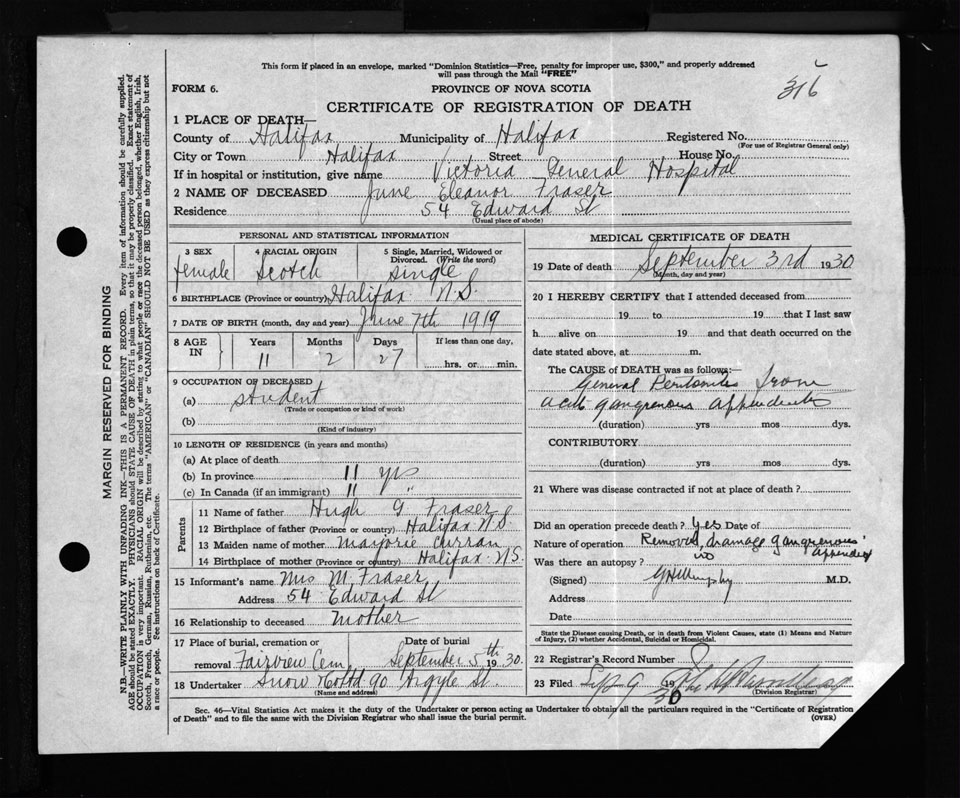 This form if placed in an envelope, marked "Dominion Statistics—Free, penalty for improper use, $300," and properly addressed
will pass through the Mail "FREE"
316
FORM 6.
PROVINCE OF NOVA SCOTIA
CERTIFICATE OF REGISTRATION OF DEATH
1 PLACE OF DEATH—
County of Halifax Municipality of Halifax Registered No.
(For use of Registrar General only)
City or Town Halifax Street House No.
If in hospital or institution, give name Victoria General Hospital
2 NAME OF DECEASED June Eleanor Fraser
Residence 54 Edward St
(Usual place of abode)
PERSONAL AND STATISTICAL INFORMATION
3 SEX 4 RACIAL ORIGIN 5 Single, Married, Widowed or Divorced. (Write the word)
female Scotch single
6 BIRTHPLACE (Province or country) Halifax N.S.
7 DATE OF BIRTH (month, day and year) June 7th 1919
8 AGE IN Years Months Days If less than one day,
11 2 27 hrs. or min.
9 OCCUPATION OF DECEASED
(a) student
(Trade or occupation or kind of work)
(b)
(Kind of industry)
10 LENGTH OF RESIDENCE (in years and months)
(a) At place of death
(b) In province 11 yrs
(c) In Canada (if an immigrant) 11 "
Parents
11 Name of father Hugh G Fraser
12 Birthplace of father (Province or country) Halifax N.S.
13 Maiden name of mother Marjorie Curran
14 Birthplace of mother (Province or country) Halifax N.S.
15 Informant's name Mrs M. Fraser
Address 54 Edward St
16 Relationship to deceased Mother
17 Place of burial, cremation or Date of burial
removal Fairview Cem. September 5th 1930.
18 Undertaker Snow & Co Ltd 90 Argyle St.
(Name and address)
MEDICAL CERTIFICATE OF DEATH
19 Date of death September 3rd 1930
(Month, day and year)
20 I HEREBY CERTIFY that I attended deceased from
19 to 19 that I last saw
h alive on 19 and that death occurred on the
date stated above, at m.
The CAUSE of DEATH was as follows:—
General Peritonitis from
acute gangrenous appendicitis
(duration) yrs mos dys.
CONTRIBUTORY
(duration) yrs mos dys.
21 Where was disease contracted if not at place of death?
Did an operation precede death? Yes Date of
Nature of operation Removed, drainage gangrenous appendix
Was there an autopsy? no
(Signed) G H Murphy M.D.
Address
Date
State the Disease causing Death, or in death from Violent Causes, state (1) Means and Nature
of Injury, (2) whether Accidental, Suicidal or Homicidal.
22 Registrar's Record Number
23 Filed Sep 9 1930
(Division Registrar)
Sec. 46—Vital Statistics Act makes it the duty of the Undertaker or person acting as Undertaker to obtain all the particulars required in the "Certificate of Registration
of Death" and to file the same with the Division Registrar who shall issue the burial permit. (OVER)
MARGIN RESERVED FOR BINDING
N.B.—WRITE PLAINLY WITH UNFADING INK—THIS IS A PERMANENT RECORD. Every item of information should be carefully supplied.
AGE should be stated EXACTLY. PHYSICIANS should STATE CAUSE OF DEATH in plain terms, so that it may be properly classified. Exact statement of
OCCUPATION is very important. RACIAL ORIGIN will be described by stating to what people or race the deceased person belonged, whether English, Irish,
Scotch, French, German, Russian, Ruthenian, etc. The terms "AMERICAN" or "CANADIAN" SHOULD NOT BE USED as they express citizenship but not
a race or people. See instructions on back of Certificate.